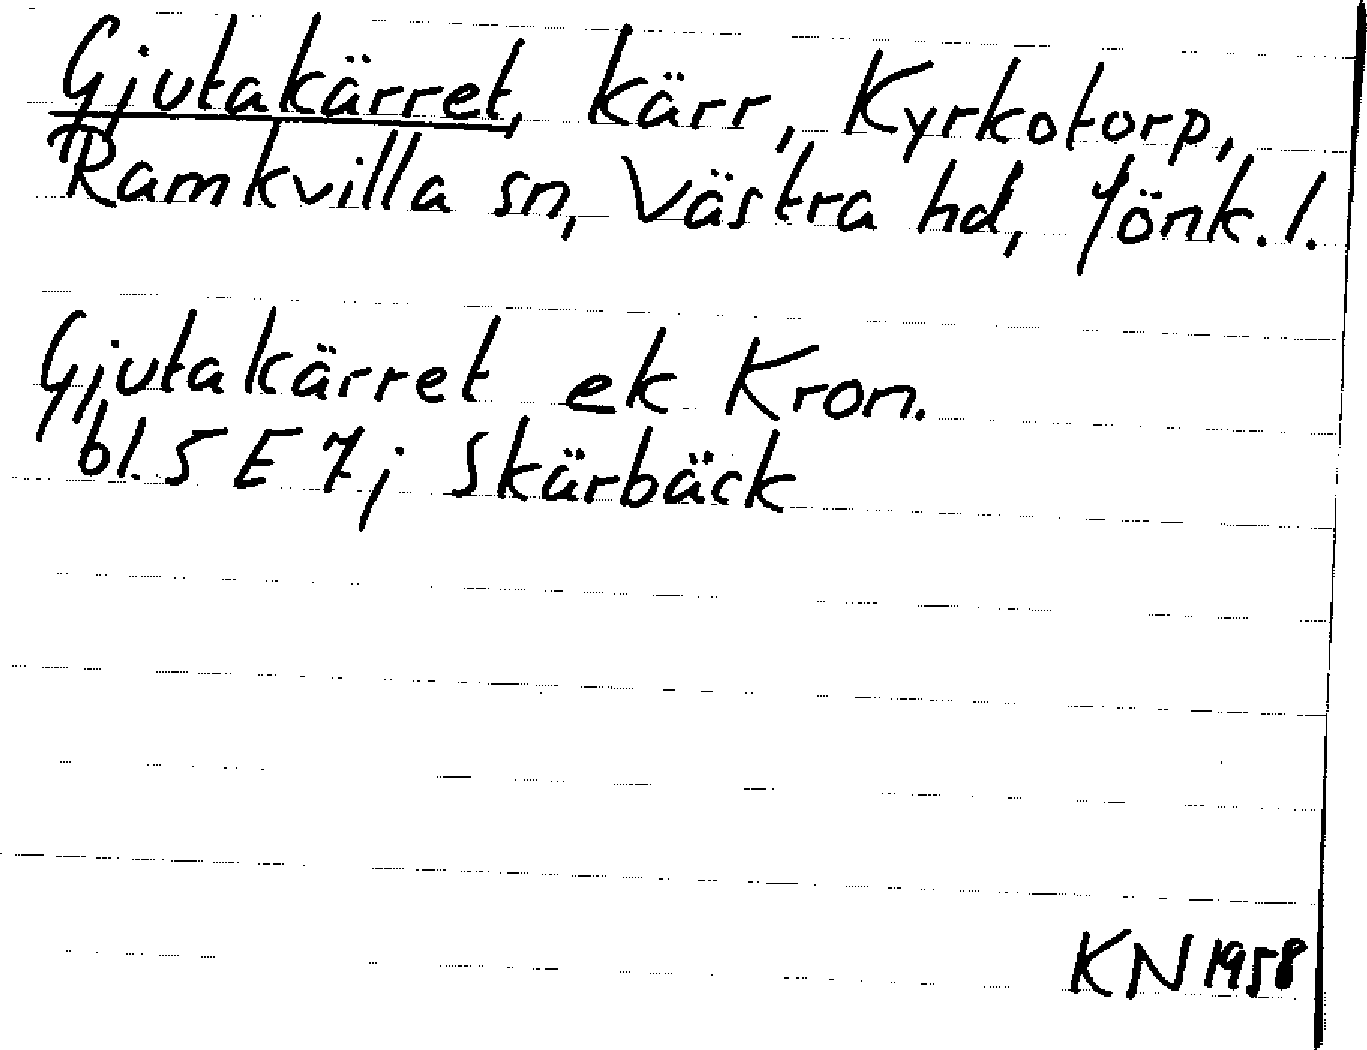 Gjutakärret, kärr, Kyrkotorp,
Ramkvilla sn, Västra hd, Jönk. l.
Gjutakärret ek Kron.
bl. 5 E 7 j Skärbäck
KN 1958